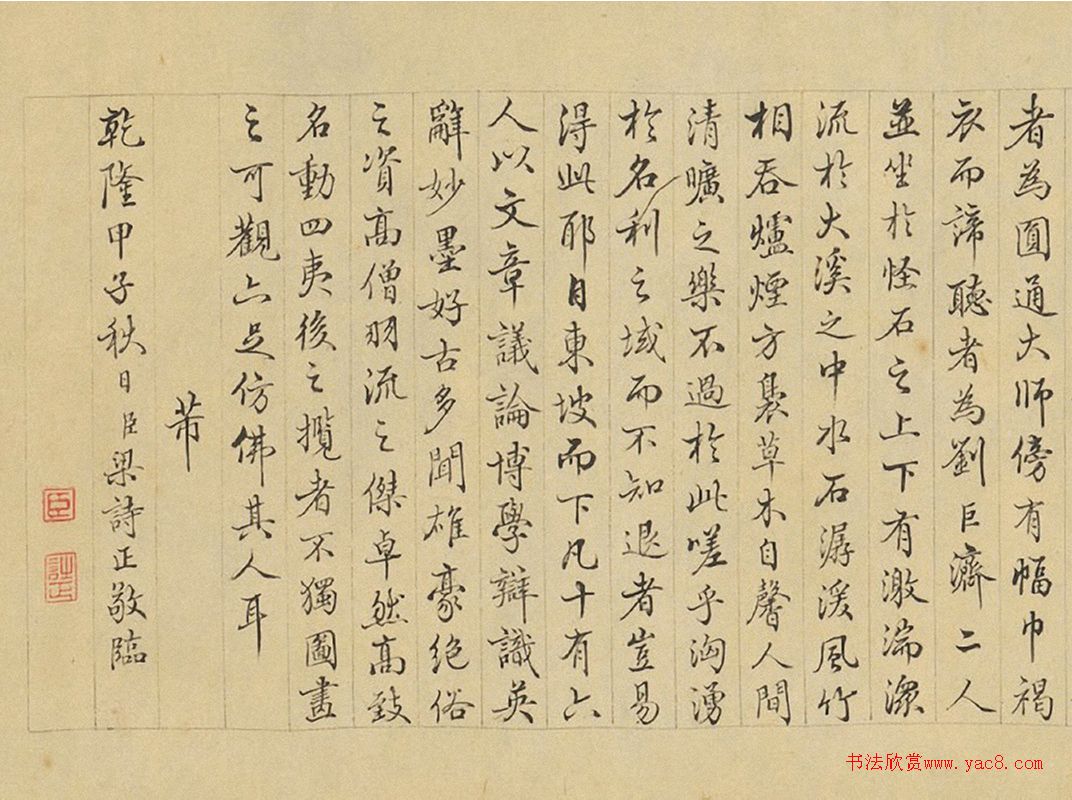 者為圓通大師傍有幅巾褐
衣而諦聽者為劉巨濟二人
並坐於怪石之上下有激湍潨
流於大溪之中水石潺湲風竹
相吞爐煙方裊草木自馨人間
清曠之樂不過於此嗟乎洶湧
於名利之域而不知退者豈易
得此耶自東坡而下凡十有六
人以文章議論博學辯識英
辭妙墨好古多聞雄豪絕俗
之資高僧羽流之傑卓然高致
名動四夷後之攬者不獨圖畫
之可觀亦足仿佛其人耳
芾
乾隆甲子秋日臣梁詩正敬臨
臣
詩正
书法欣赏www.yac8.com